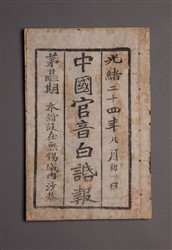 光緒二十四年八月初一日
中國官音白話報
第廿三期
本館設在無錫城內沙巷